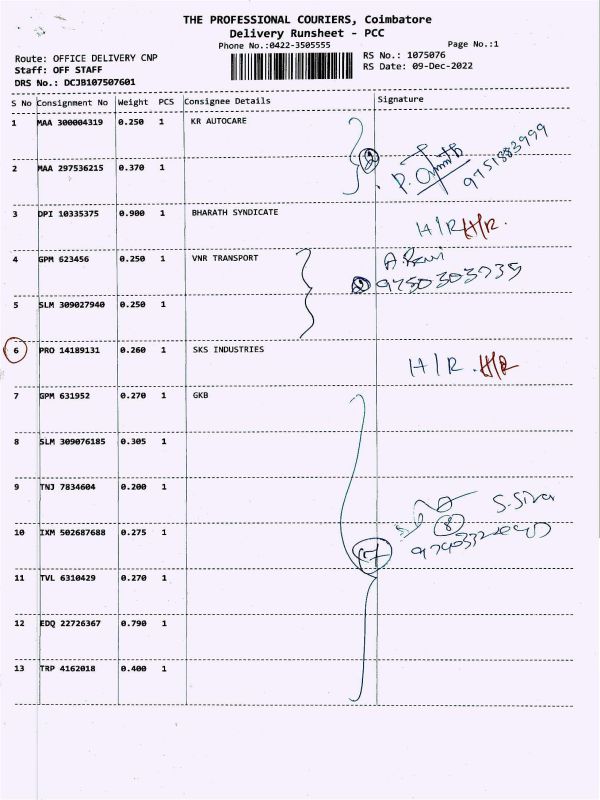 THE PROFESSIONAL COURIERS, Coimbatore
Delivery Runsheet - PCC
Phone No.:0422-3505555
Page No.:1
Route: OFFICE DELIVERY CNP
RS No.: 1075076
Staff: OFF STAFF
RS Date: 09-Dec-2022
DRS No.: DCJB107507601
S No Consignment No Weight PCS Consignee Details Signature
1 MAA 300004319 0.250 1 KR AUTOCARE
2 MAA 297536215 0.370 1
P.
9751883999
3 DPI 10335375 0.900 1 BHARATH SYNDICATE
H/R H/R.
4 GPM 623456 0.250 1 VNR TRANSPORT
9750303735
5 SLM 309027940 0.250 1
6 PRO 14189131 0.260 1 SKS INDUSTRIES
H/R. H/R
7 GPM 631952 0.270 1 GKB
8 SLM 309076185 0.305 1
9 TNJ 7834604 0.200 1
S. Siva
8
10 IXM 502687688 0.275 1
7
11 TVL 6310429 0.270 1
12 EDQ 22726367 0.790 1
13 TRP 4162018 0.400 1